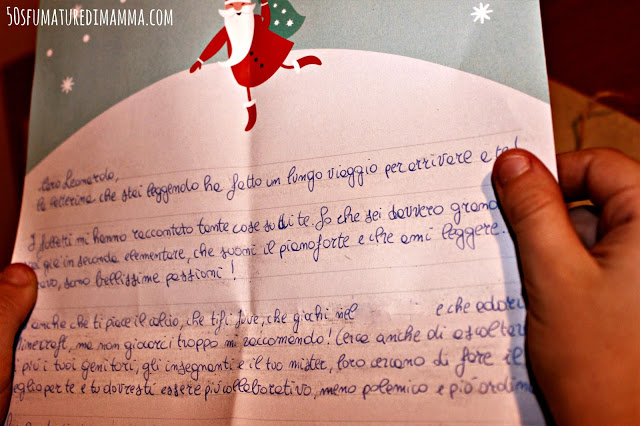 50SFUMATUREDIMAMMA.COM
Caro Leonardo,
la letterina che stai leggendo ha fatto un lungo viaggio per arrivare a te!
I folletti mi hanno raccontato tante cose su di te. So che sei davvero grande
già in seconda elementare, che suoni il pianoforte e che ami leggere.
sono bellissime passioni!
anche che ti piace il calcio, che tifi Juve, che giochi nel e che adori
Minecraft, ma non giocarci troppo mi raccomando! Cerca anche di ascoltare
più i tuoi genitori, gli insegnanti e il tuo mister, loro cercano di fare il
meglio per te e tu dovresti essere più collaborativo, meno polemico e più ordin